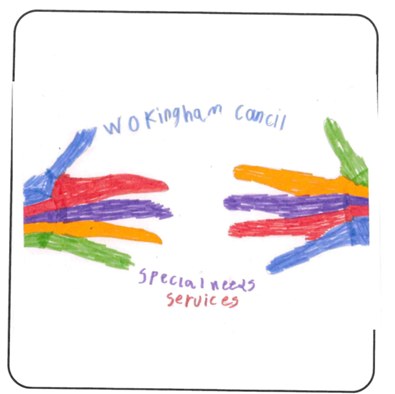 WOKingham Cancil
Special needs
Services